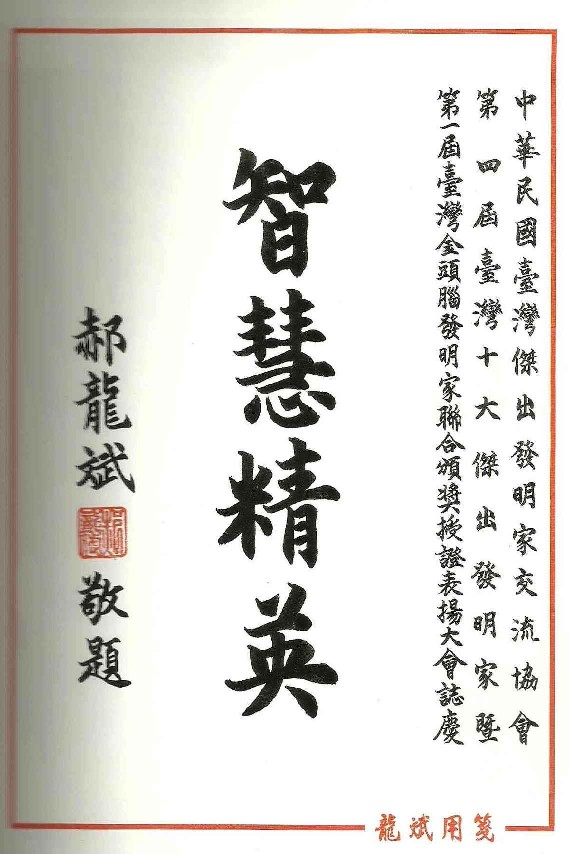 中華民國臺灣傑出發明家交流協會
第四屆臺灣十大傑出發明家暨
第一屆臺灣金頭腦發明家聯合頒獎授證表揚大會誌慶
智慧精英
郝龍斌
敬題
龍斌用箋